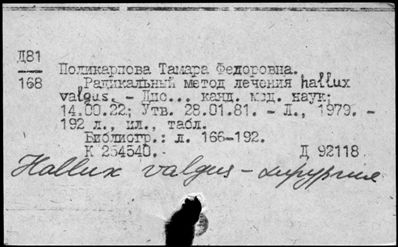 Д81
168
Поликарпова Тамара Федоровна.
Радикальный метод лечения hallux
valgus. - Дис... канд. мед. наук:
14.00.22; Утв. 28.01.81. - Л., 1979. -
192 л., ил., табл.
Библиогр.: л. 166-192.
К 254540. - Д 92118
Hallux valgus - хирургия